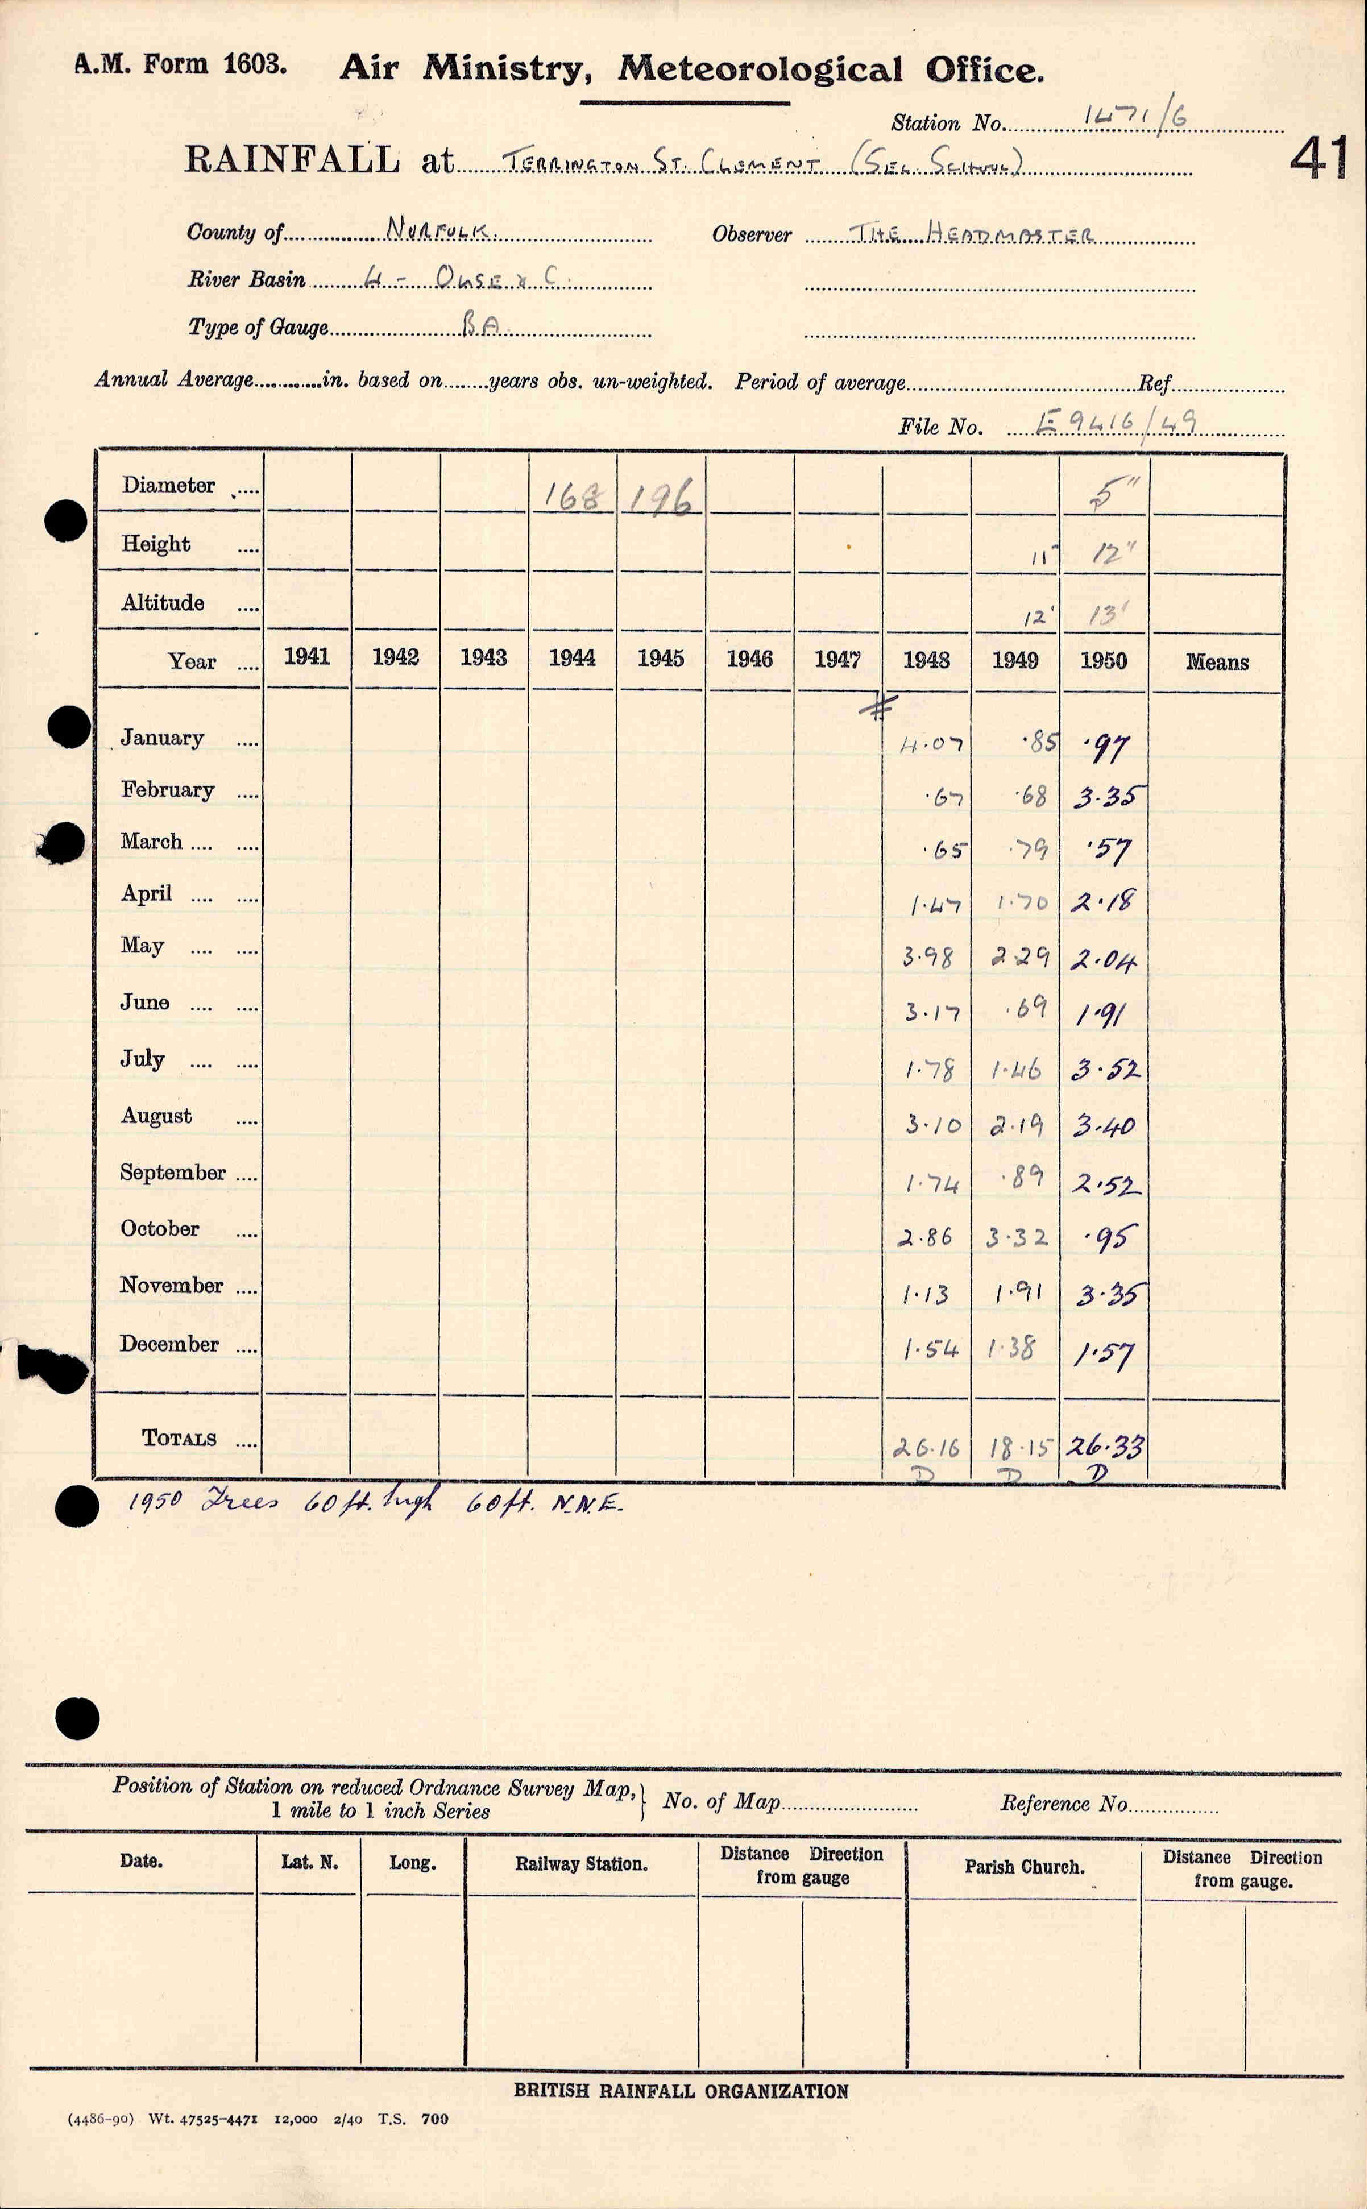 A.M. Form 1603. Air Ministry, Meteorological Office.
Station No. 1471/6
RAINFALL at TERRINGTON ST. CLEMENT (SEC. SCHOOL) 41
County of NORFOLK. Observer THE HEADMASTER
River Basin 4 - OUSE & C.
Type of Gauge BA.
Annual Average............in. based on........years obs. un-weighted. Period of average........Ref........
File No. E 9416/49
Diameter .... 168 196 5"
Height .... 11" 12"
Altitude .... 12' 13'
Year .... 1941 1942 1943 1944 1945 1946 1947 1948 1949 1950 Means
January .... 4.07 .85 .97
February .... .67 .68 3.35
March .... .... .65 .79 .57
April .... .... 1.47 1.70 2.18
May .... .... 3.98 2.29 2.04
June .... .... 3.17 .69 1.91
July .... .... 1.78 1.46 3.52
August .... 3.10 2.19 3.40
September .... 1.74 .89 2.52
October .... 2.86 3.32 .95
November .... 1.13 1.91 3.35
December .... 1.54 1.38 1.57
TOTALS .... 26.16 18.15 26.33
D D D
1950 Trees 60 ft. high 60 ft. N.N.E.
Position of Station on reduced Ordnance Survey Map, } No. of Map........ Reference No........
1 mile to 1 inch Series
Date. Lat. N. Long. Railway Station. Distance Direction from gauge Parish Church. Distance Direction from gauge.
BRITISH RAINFALL ORGANIZATION
(4486-90) Wt. 47525-4471 12,000 2/40 T.S. 700